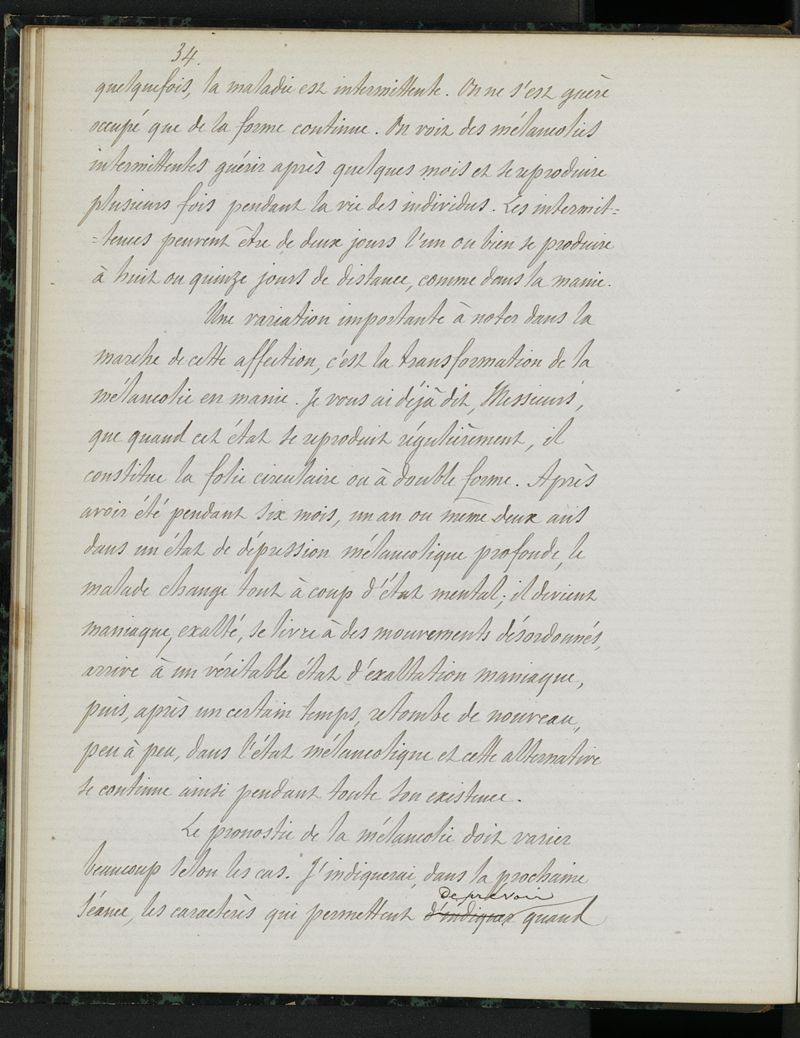 34.
quelquefois, la maladie est intermittente. On ne s'est guère
occupé que de la forme continue. On voit des mélancolies
intermittentes guérir après quelques mois et se reproduire
plusieurs fois pendant la vie des individus. Les intermit=
=tences peuvent être de deux jours l'un ou bien se produire
à huit ou quinze jours de distance, comme dans la manie.
Une variation importante à noter dans la
marche de cette affection, c'est la transformation de la
mélancolie en manie. Je vous ai déjà dit, Messieurs,
que quand cet état se reproduit régulièrement, il
constitue la folie circulaire ou à double forme. Après
avoir été pendant six mois, un an ou même deux ans
dans un état de dépression mélancolique profonde, le
malade change tout à coup d'état mental; il devient
maniaque, exalté, se livre à des mouvements désordonnés,
arrive à un véritable état d'exaltation maniaque,
puis, après un certain temps, retombe de nouveau,
peu à peu, dans l'état mélancolique et cette alternative
se continue ainsi pendant toute son existence.
Le pronostic de la mélancolie doit varier
beaucoup selon les cas. J'indiquerai, dans la prochaine
de prévoir
séance, les caractères qui permettent d'indiquer quand